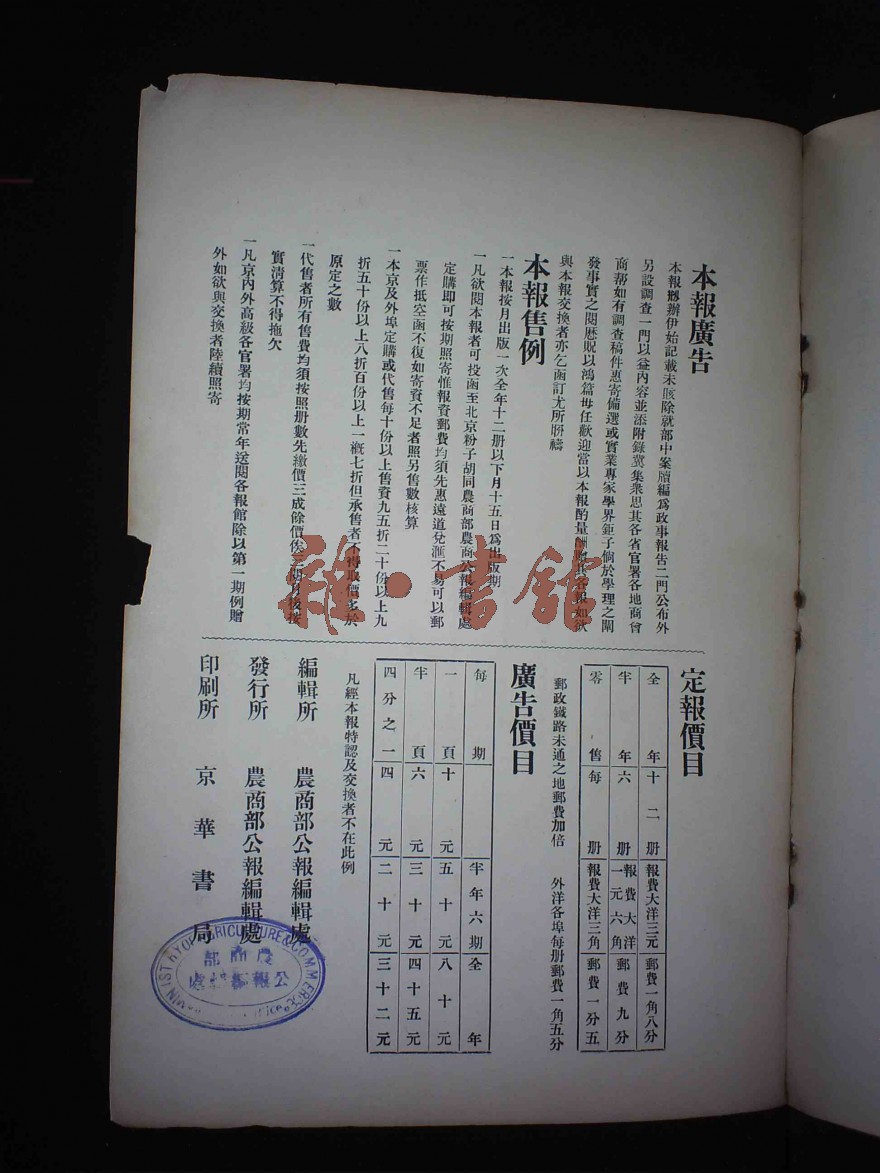 本報廣告
本報夥辦伊始記載未賅除就部中案牘編爲政事報告二門公布外
另設調查一門以益內容並添附錄冀集衆思其各省官署各地商會
商帮如有調查稿件惠寄備選或實業專家學界鉅子倘於學理之闡
發事實之閱歷貺以鴻篇毋任歡迎當以本報酌量酬贈其各報如欲
與本報交換者亦乞函訂尤所盻禱
本報售例
一本報按月出版一次全年十二册以下月十五日爲出版期
一凡欲閱本報者可投函至北京粉子胡同農商部農商公報編輯處
定購即可按期照寄惟報資郵費均須先惠遠道兌滙不易可以郵
票作抵空函不復如寄資不足者照另售數核算
一本京及外埠定購或代售每十份以上售資九五折二十份以上九
折五十份以上八折百份以上一概七折但承售者不得取價多於
原定之數
一代售者所有售費均須按照册數先繳價三成餘價俟三閱月後按
實清算不得拖欠
一凡京內外高級各官署均按期常年送閱各報館除以第一期例贈
外如欲與交換者陸續照寄
定報價目
全年十二册 報費大洋三元 郵費一角八分
半年六册 報費大洋一元六角 郵費九分
零售每册 報費大洋三角 郵費一分五
郵政鐵路未通之地郵費加倍 外洋各埠每册郵費一角五分
廣告價目
每期 半年六期 全年
一頁 十元 五十元 八十元
半頁 六元 三十元 四十五元
四分之一 四元 二十元 三十二元
凡經本報特認及交換者不在此例
編輯所 農商部公報編輯處
發行所 農商部公報編輯處
印刷所 京華書局
MINISTRY OF AGRICULTURE & COMMERCE
農商部
公報編輯處
雜·書館